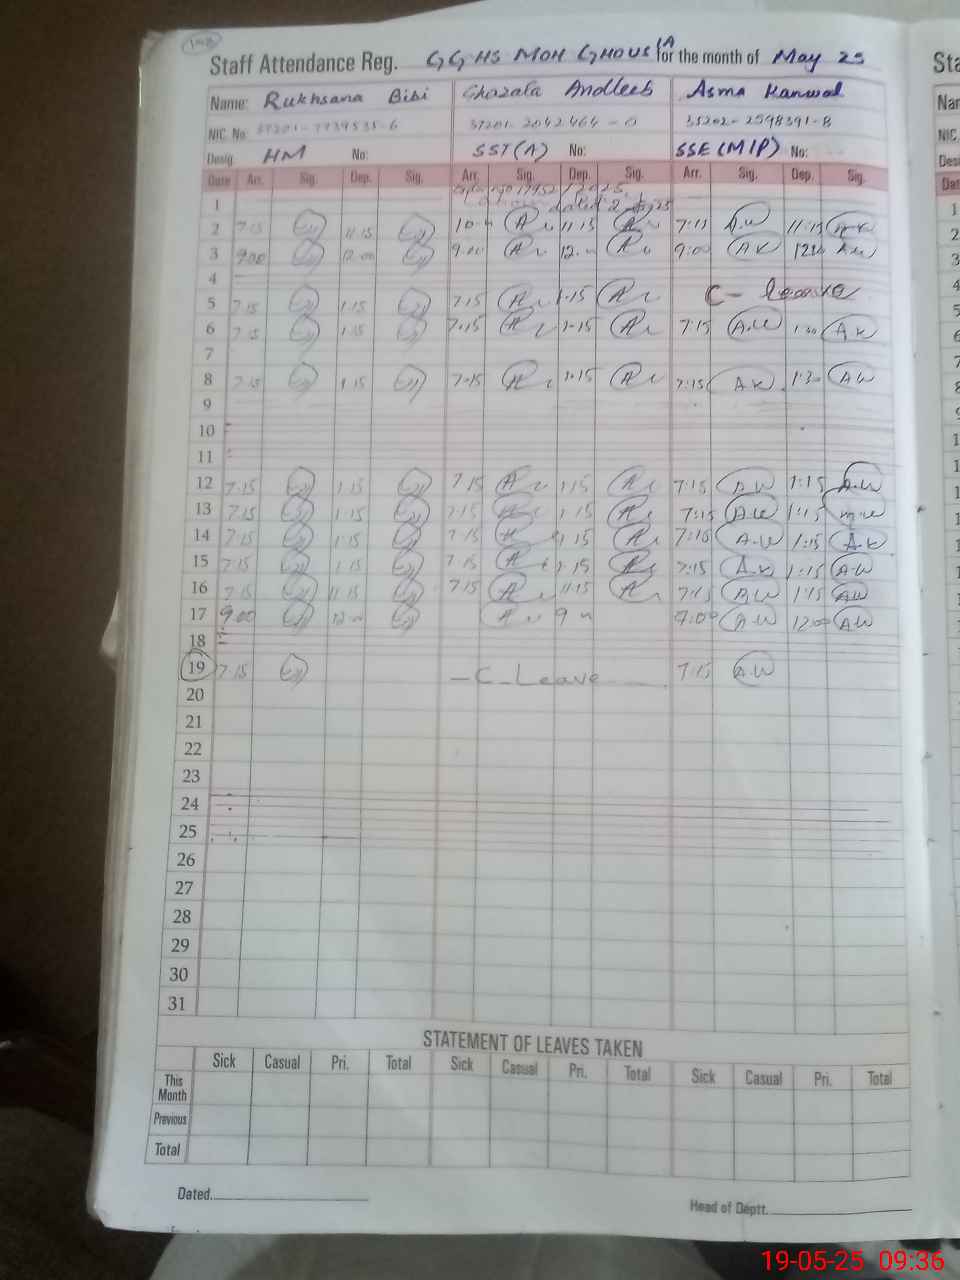 Staff Attendance Reg. GGHS MOH GHOUSIA for the month of May 25
Name: Rukhsana Bibi Ghazala Andleeb Asma Kanwal
NIC. No: 37201-7739535-6 37201-2042464-0 35202-2598391-8
Desig. HM No: SST(A) No: SSE(M/P) No:
Date Arr. Sig. Dep. Sig. Arr. Sig. Dep. Sig. Arr. Sig. Dep. Sig.
1 dated 2
2 7:15 11:15 10 11:15 7:15 A.K 11:15 A.K
3 9:00 12:00 9:00 12 9:00 AK 12:00 A.K
4
5 7:15 1:15 7:15 1:15 C- leave
6 7:15 1:15 7:15 1:15 7:15 A.K 1:30 A.K
7
8 7:15 1:15 7:15 1:15 7:15 AK 1:30 AK
9
10
11
12 7:15 1:15 7:15 1:15 7:15 AK 1:15 A.K
13 7:15 1:15 7:15 1:15 7:15 A.K 1:15
14 7:15 1:15 7:15 1:15 7:15 A.K 1:15 A.K
15 7:15 1:15 7:15 1:15 7:15 A.K 1:15 A.K
16 7:15 11:15 7:15 11:15 7:15 A.K 1:15 AK
17 9:00 12 9 9:00 A.K 12:00 AK
18
19 7:15 -C-Leave 7:15 A.K
20
21
22
23
24
25
26
27
28
29
30
31
STATEMENT OF LEAVES TAKEN
Sick Casual Pri. Total Sick Casual Pri. Total Sick Casual Pri. Total
This Month
Previous
Total
Dated. Head of Deptt.
19-05-25 09:36